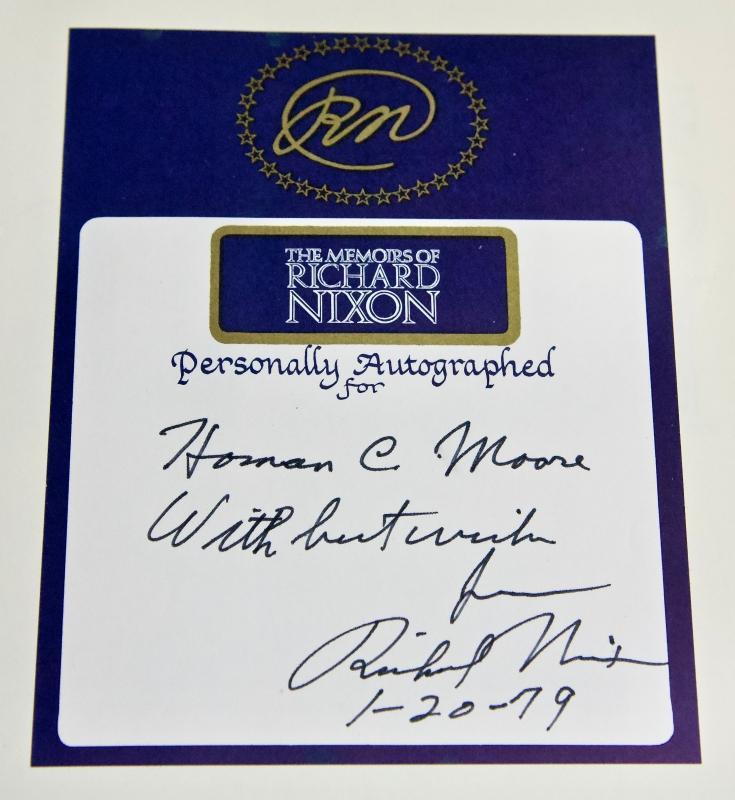 RN
THE MEMOIRS OF
RICHARD
NIXON
Personally Autographed
for
Homan C. Moore
With best wishes
from
Richard Nixon
1-20-79